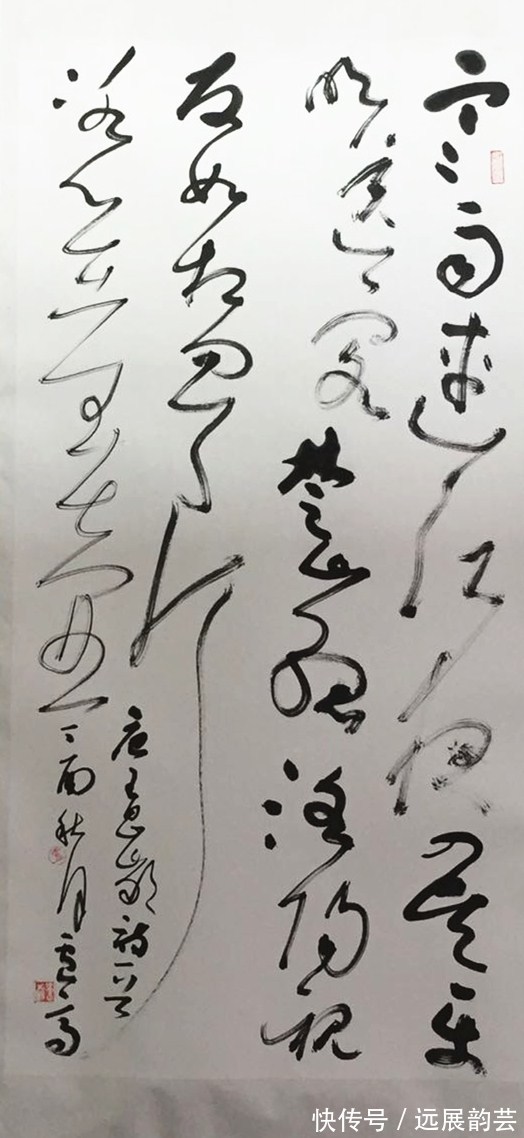 寒雨連江夜入吴平
明送客楚山孤洛陽親
友如相問一片
冰心在玉壶
唐王昌龄詩一首
丁酉秋月
快传号 / 远展韵芸